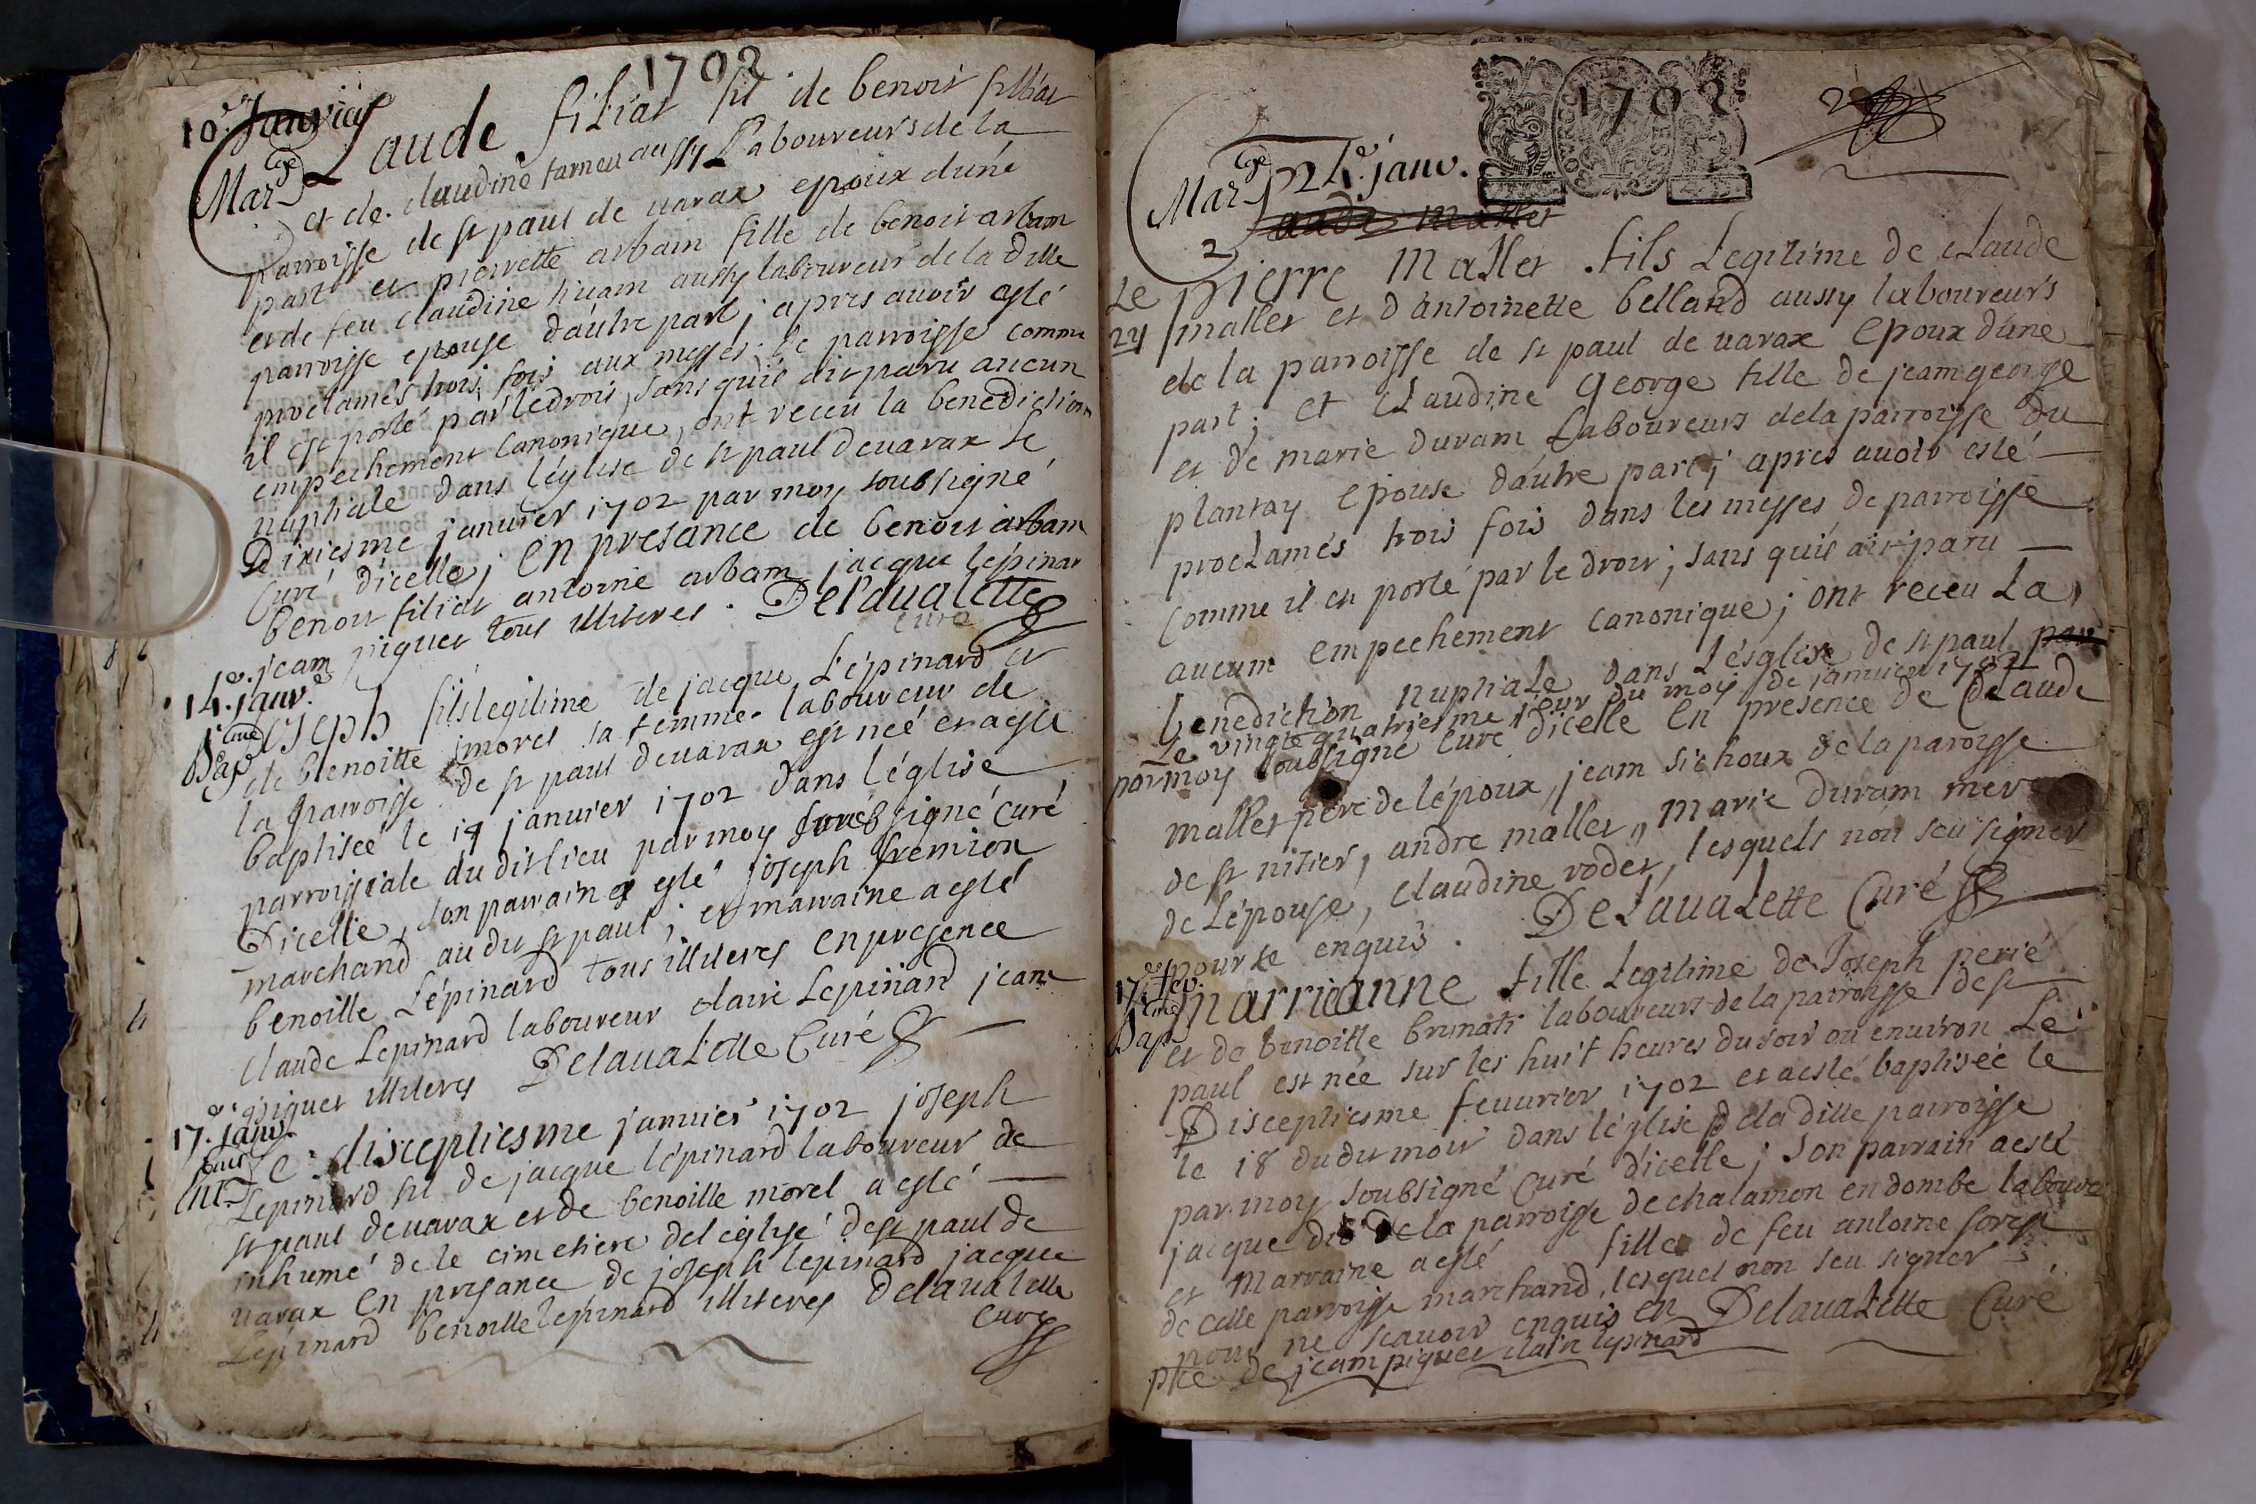 1702
10.e Janvier
Mar.ge Claude filiat fil de benoit filliat
et de claudine fameu aussy Laboureurs de la
parroisse de st paul de varax epoux d'une
part et pierrette arbain fille de benoit arbam
et de feu claudine huam aussy laboureur de la ditte
parroisse epouse d'autre part ; apres avoir esté
proclamés trois fois aux messes de parroisse comme
il est porté par le droit, sans quil ait paru aucun
empechement canonique, ont receu la benediction
nuptiale dans l'église de st paul de varax Le
Dixiesme janvier 1702 par moy soubsigné
Curé d'icelle ; En presance de benoit arbam
benoit filiat antoine arbam jacque lépinar
jeam piquet tous illiteres . DelavaLette
curé
14.e janv.e
Bap.sme Joseph fils legitime de jacque Lépinard et
de benoitte morel sa femme laboureur de
la parroisse de st paul de varax est neé et a esté
baptiseé le 14 janvier 1702 dans l'église
parroissiale du dit lieu par moy soubsigné curé
D'icelle, son parrain a esté joseph fremion
marchand au dit st paul ; et marraine a esté
benoitte Lépinard tous illiteres en presence
Claude Lepinard laboureur claire Lepinard jeam
piquet illiteres DelavaLette Curé
17.e janv.
Le disceptiesme janvier 1702 joseph
Lepinard fil de jacque lépinard laboureur de
st paul de varax et de benoitte morel a esté
inhumé de le cimetiere de l'église de st paul de
varax en presance de joseph lepinard jacque
Lépinard benoitte lepinard illiteres DelavaLette
curé
1702
2
Mar.ge 24.e janv.
2
Le Pierre Mallet fils Legitime de claude
24 mallet et d'antoinette belland aussy laboureurs
de la parroisse de st paul de varax Epoux d'une
part ; et Claudine George fille de jeam george
et de marie duram Laboureurs de la parroisse du
plantay Epouse d'autre part ; apres avoir esté
proclamés trois fois dans les messes de parroisse
Comme il est porté par le droit ; sans quil ait paru
aucum empechement canonique ; ont receu La
benediction Nuptiale dans L'ésglise de st paul par
Le vingtquatriesme jour du moy de janvier 1702
par moy soubsigné Curé d'icelle En presence de Claude
mallet pere de l'époux, jeam sichoux de la paroisse
de st nisier, andre mallet, marie duram mere
de L'épouse, claudine rodet, lesquels non seu signer
pour ce enquis . DeLavaLette Curé
17.e fev.
Bap.sme Marrieanne fille Legitime de Joseph perié
et de benoitte brunati laboureurs de la parroisse de st
paul est née sur les huit heures du soir ou environ Le
Disceptiesme fevurier 1702 et a esté baptiseé le
le 18 du dit mois dans l'église de la ditte parroisse
par moy soubsigné Curé d'icelle ; son parrain a esté
jacque de la parroisse de chalamon en dombe laboure
et Marraine a esté fille de feu antoine
de cette parroisse marchand, lesquel non seu signer
pour ne scavoir enquis en DelavaLette Curé
pñce de jeam piquet claire lepinard